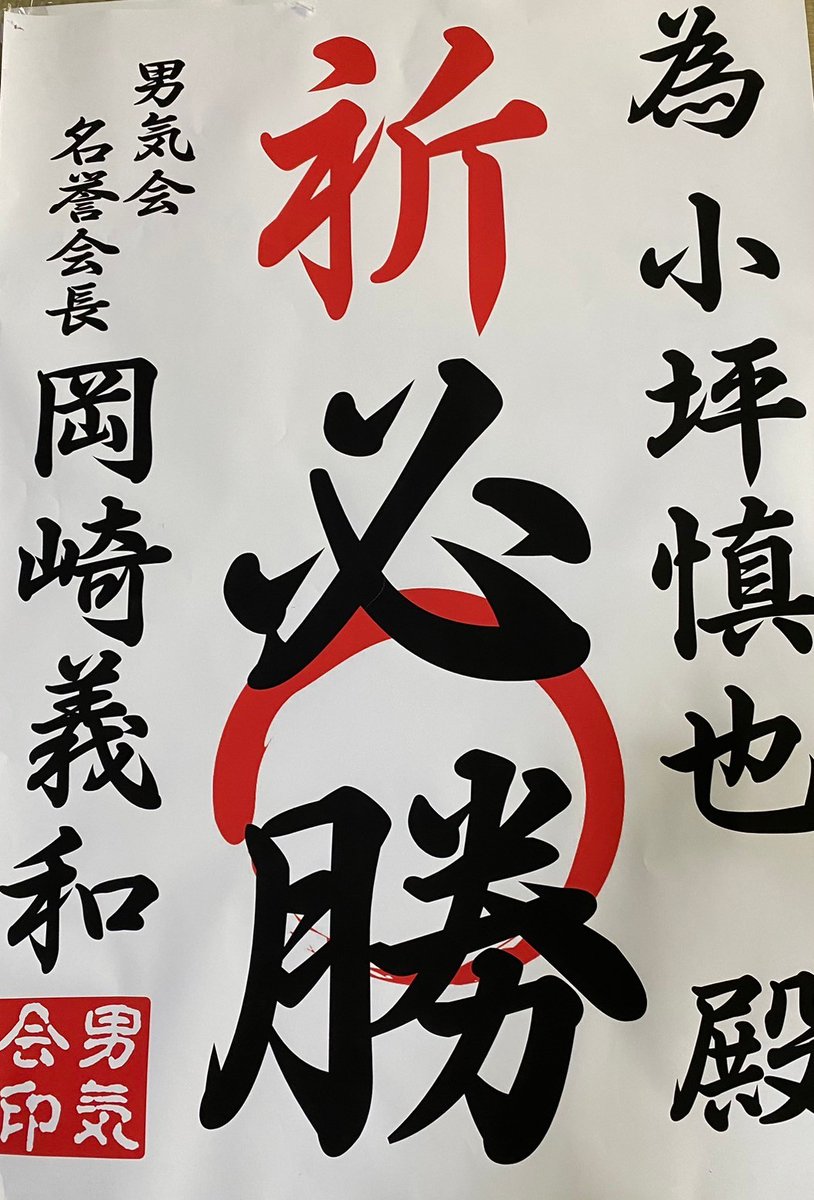 為 小坪慎也 殿
祈必勝
男気会
名誉会長
岡崎義和
男気
会印